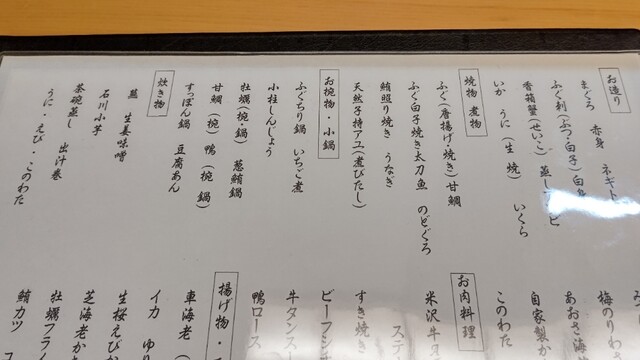 お造り
まぐろ 赤身 ネギト
ふぐ刺(ぶつ・白子)白身
香箱蟹(せいこ) 蒸し
いか うに(生 焼) いくら
焼物 煮物
ふぐ(唐揚げ・焼き)甘鯛
ふぐ白子焼き 太刀魚 のどぐろ
鮪照り焼き うなぎ
天然子持アユ(煮びたし)
お椀物・小鍋
ふぐちり鍋 いちご煮
小柱しんじょう
牡蠣(椀・鍋) 葱鮪鍋
甘鯛(椀) 鴨(椀 鍋)
すっぽん鍋 豆腐あん
炊き物
蕪 生姜味噌
石川小芋
茶碗蒸し 出汁巻
うに・えび・このわた
梅のりわ
あおさ海
自家製か
このわた
お肉料理
米沢牛
ステ
すき焼き
ビーフシ
牛タンス
鴨ロース
揚げ物・
車海老(
イカ ゆり
生桜えびか
芝海老か
牡蠣フライ
鮪カツ